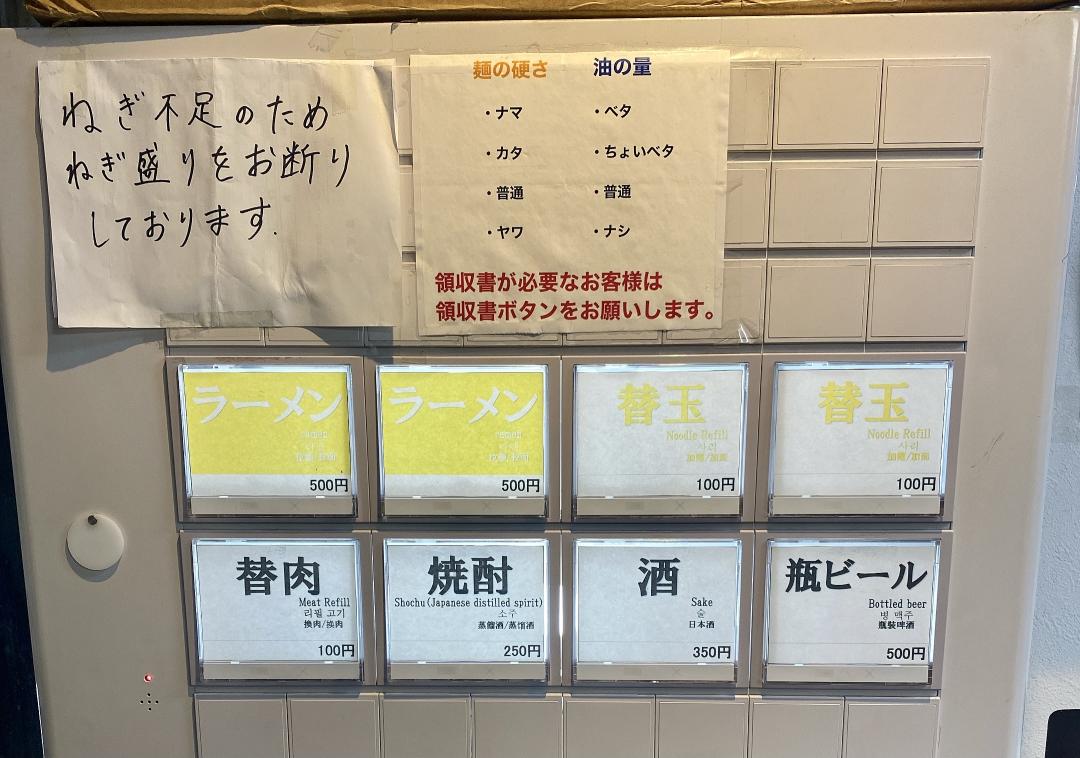 ねぎ不足のため
ねぎ盛りをお断り
しております.
麺の硬さ
・ナマ
・カタ
・普通
・ヤワ
油の量
・ベタ
・ちょいベタ
・普通
・ナシ
領収書が必要なお客様は
領収書ボタンをお願いします。
ラーメン
ramen
500円
ラーメン
ramen
500円
替玉
Noodle Refill
사리
加麵/加面
100円
替玉
Noodle Refill
사리
加麵/加面
100円
替肉
Meat Refill
리필 고기
換肉/换肉
100円
焼酎
Shochu(Japanese distilled spirit)
소주
蒸餾酒/蒸馏酒
250円
酒
Sake
술
日本酒
350円
瓶ビール
Bottled beer
병 맥주
瓶裝啤酒
500円